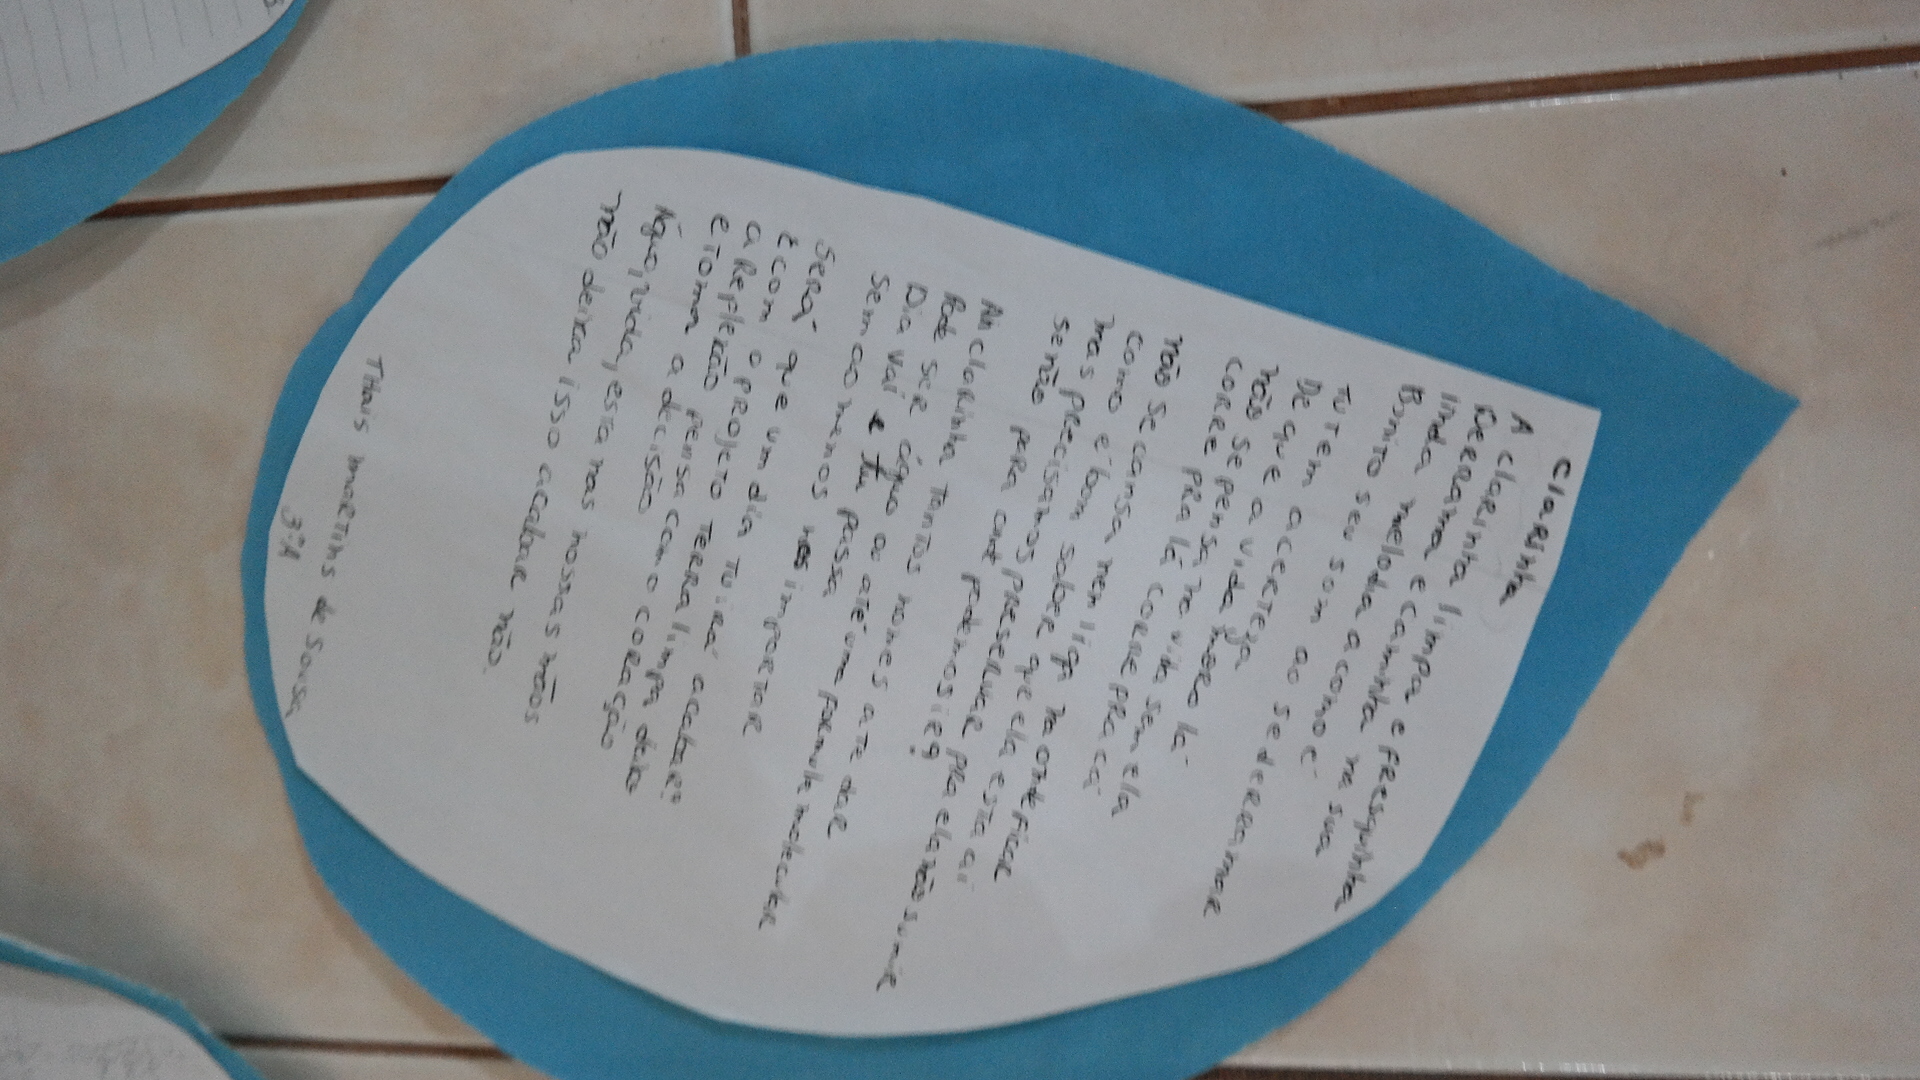 Clarinha
A clarinha limpa e fresquinha
Derrama e caminha na sua
linda melodia acomoe
Bonito seu som ao se derramar
Tu tem a certeza
De que a vida
não se pensa no vida sem ela
corre pra lá corre pra cá
não se cansa nem liga na onde ficar
como é bom saber que ela esta ai
mas precisamos preservar pra ela não sumir
senão para onde podemos ir?
Ai clarinha tantos nomes ate dar
Pode ser água ou até uma formula molecular
Dia vai e tu passa
sem ao menos importar
Será que um dia tu irá acabar?
É com o projeto terra limpa deixo
a reflexão pensa com o coração
e toma a decisão
Água, vida, esta nas nossas mãos
não deixa isso acabar não.
Thais martins de Sousa
3ºA